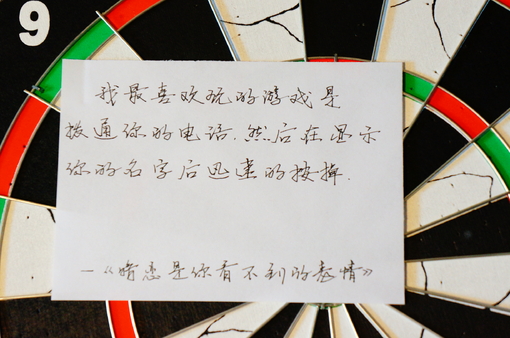 9
我最喜欢玩的游戏是
拨通你的电话.然后在显示
你的名字后迅速的按掉.
—《暗恋是你看不到的表情》